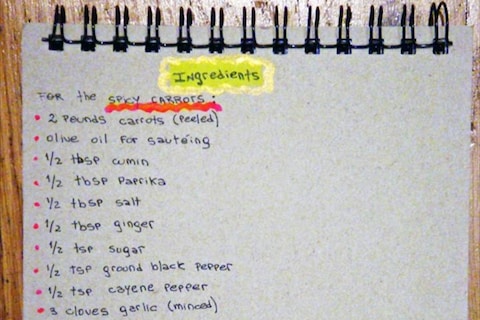 Ingredients
FOR the SPICY CARROTS:
• 2 pounds carrots (peeled)
• olive oil for sautéing
• 1/2 tbsp cumin
• 1/2 tbsp paprika
• 1/2 tbsp salt
• 1/2 tbsp ginger
• 1/2 tsp sugar
• 1/2 tsp ground black pepper
• 1/2 tsp cayene pepper
• 3 cloves garlic (minced)